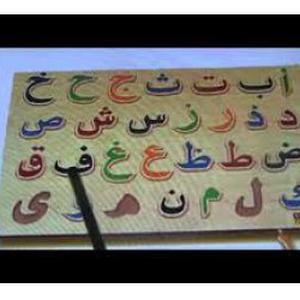 أ ب ت ث ج ح خ
د ذ ر ز س ش ص
ض ط ظ ع غ ف ق
ل م ن ه ى